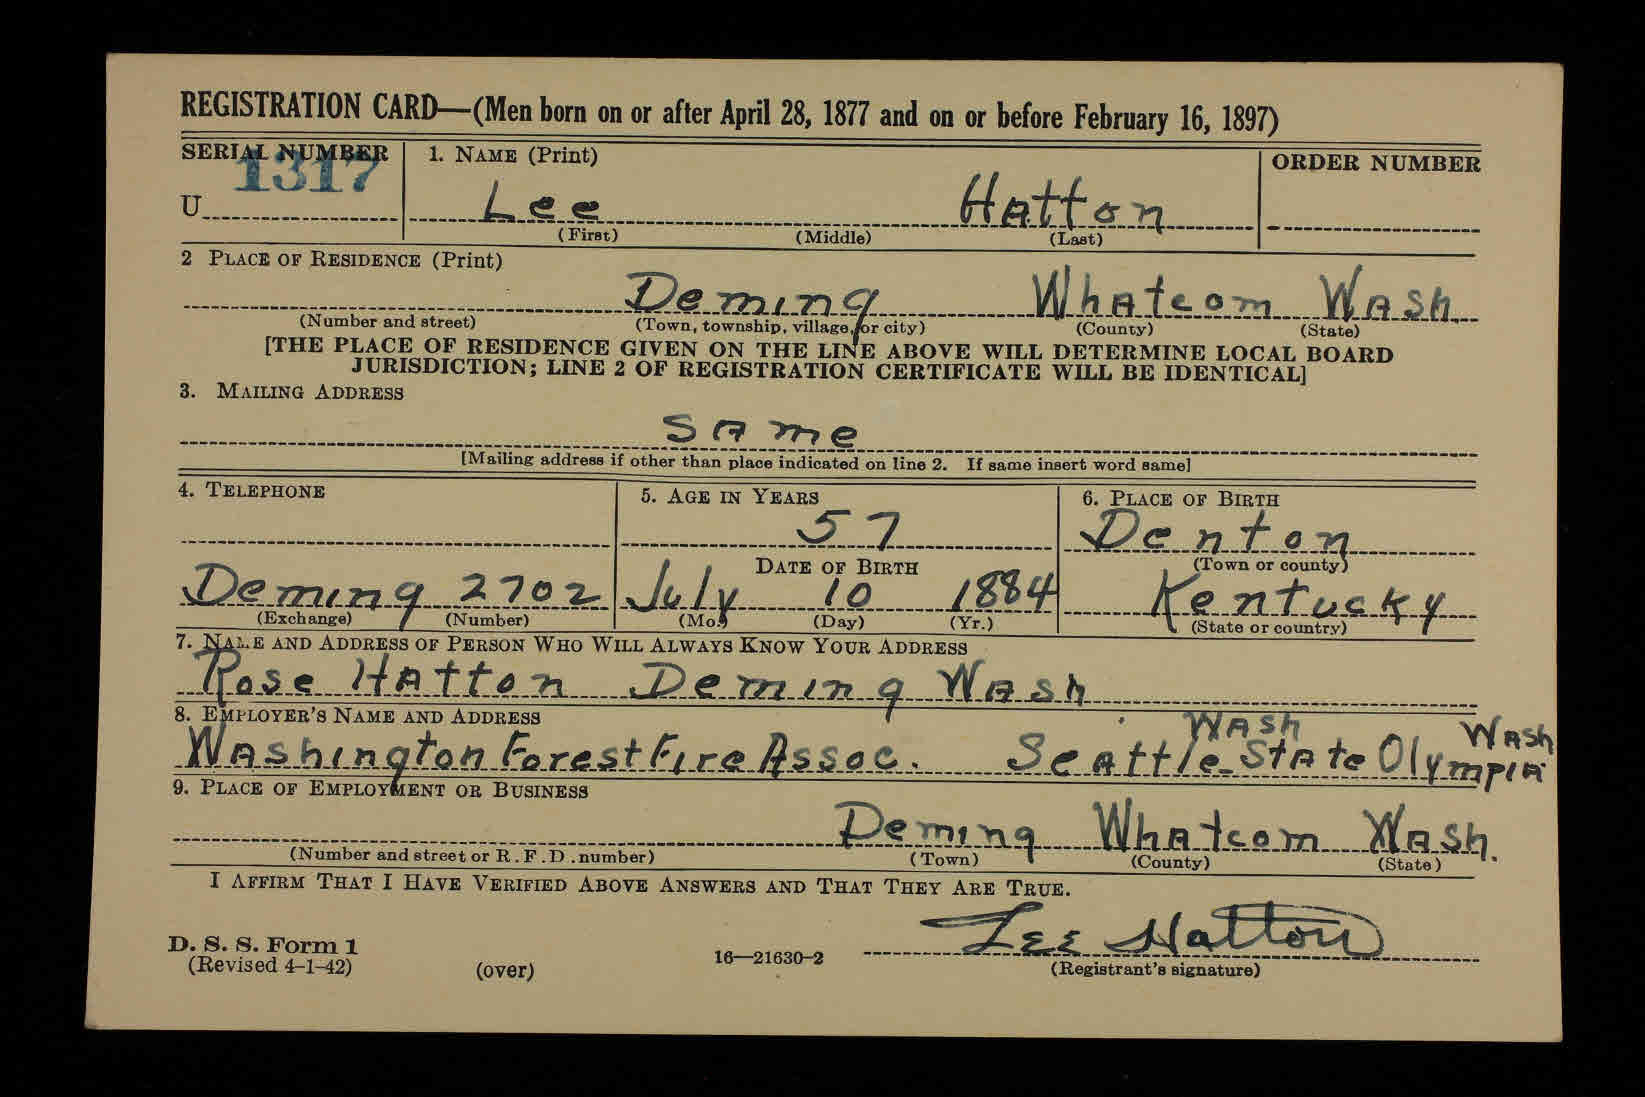 REGISTRATION CARD—(Men born on or after April 28, 1877 and on or before February 16, 1897)
SERIAL NUMBER 1. NAME (Print) ORDER NUMBER
1317
U Lee Hatton
(First) (Middle) (Last)
2 PLACE OF RESIDENCE (Print)
Deming Whatcom Wash.
(Number and street) (Town, township, village, or city) (County) (State)
[THE PLACE OF RESIDENCE GIVEN ON THE LINE ABOVE WILL DETERMINE LOCAL BOARD
JURISDICTION; LINE 2 OF REGISTRATION CERTIFICATE WILL BE IDENTICAL]
3. MAILING ADDRESS
Same
[Mailing address if other than place indicated on line 2. If same insert word same]
4. TELEPHONE 5. AGE IN YEARS 6. PLACE OF BIRTH
57 Denton
DATE OF BIRTH (Town or county)
Deming 2702 July 10 1884 Kentucky
(Exchange) (Number) (Mo.) (Day) (Yr.) (State or country)
7. NAME AND ADDRESS OF PERSON WHO WILL ALWAYS KNOW YOUR ADDRESS
Rose Hatton Deming Wash
8. EMPLOYER'S NAME AND ADDRESS
Wash Wash
Washington Forest Fire Assoc. Seattle - State Olympia
9. PLACE OF EMPLOYMENT OR BUSINESS
Deming Whatcom Wash.
(Number and street or R.F.D. number) (Town) (County) (State)
I AFFIRM THAT I HAVE VERIFIED ABOVE ANSWERS AND THAT THEY ARE TRUE.
Lee Hatton
D. S. S. Form 1
(Revised 4-1-42) (over) 16—21630-2 (Registrant's signature)